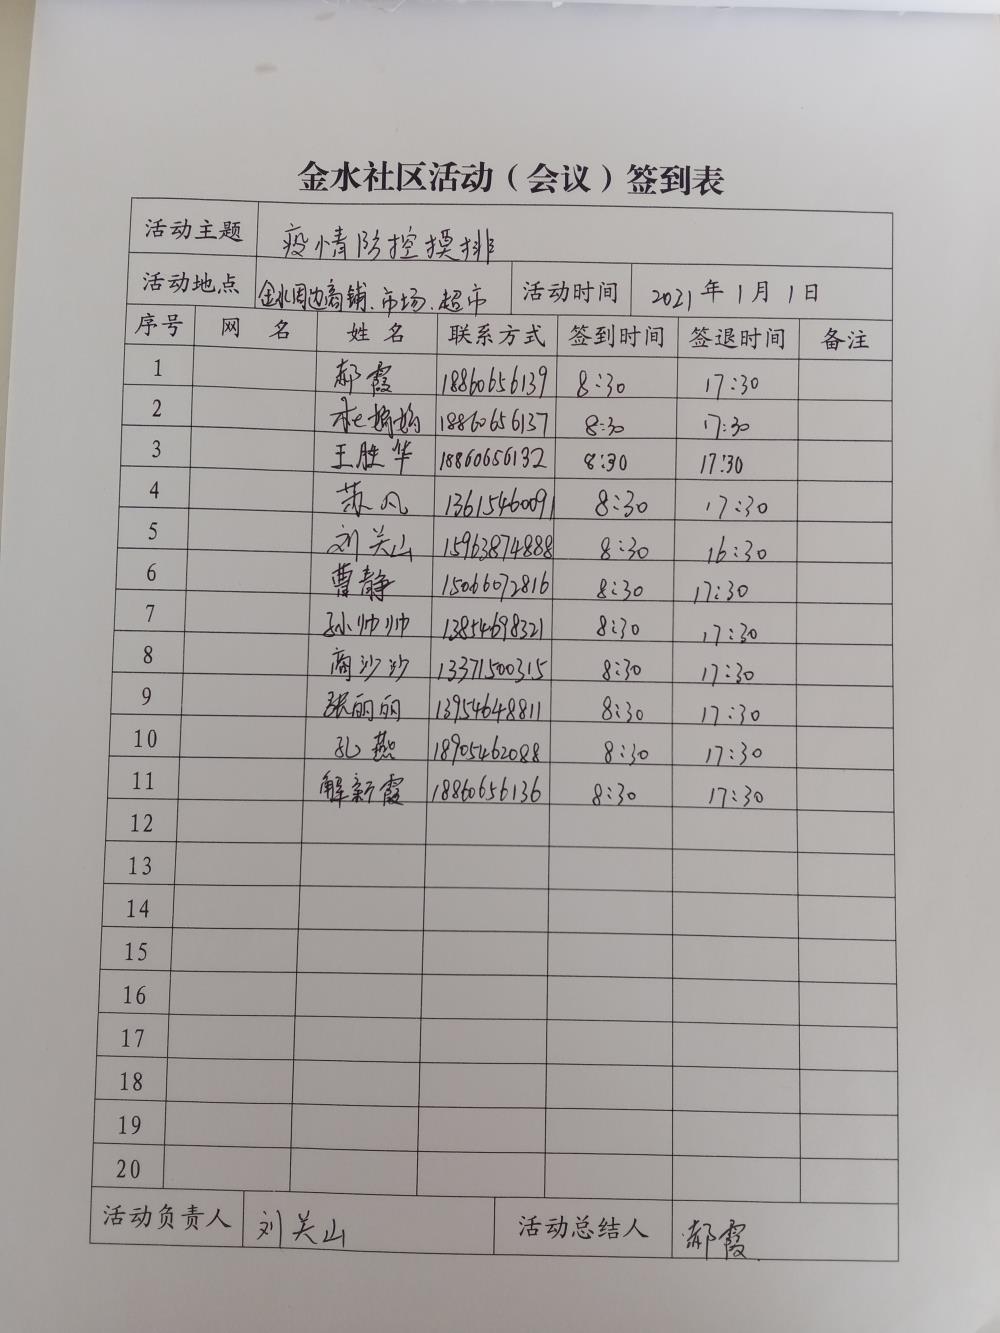 金水社区活动（会议）签到表
活动主题 疫情防控摸排
活动地点 金水周边商铺、市场、超市 活动时间 2021年1月1日
序号 网 名 姓 名 联系方式 签到时间 签退时间 备注
1 郝霞 18860656139 8:30 17:30
2 杜娟娟 18860656137 8:30 17:30
3 王胜华 18860656132 8:30 17:30
4 苏凡 13615460091 8:30 17:30
5 刘关山 15963874888 8:30 16:30
6 曹静 15066072816 8:30 17:30
7 孙帅帅 13854698321 8:30 17:30
8 商沙沙 13371500315 8:30 17:30
9 张丽丽 13954648811 8:30 17:30
10 孔燕 18905462088 8:30 17:30
11 解新霞 18860656136 8:30 17:30
12
13
14
15
16
17
18
19
20
活动负责人 刘关山 活动总结人 郝霞